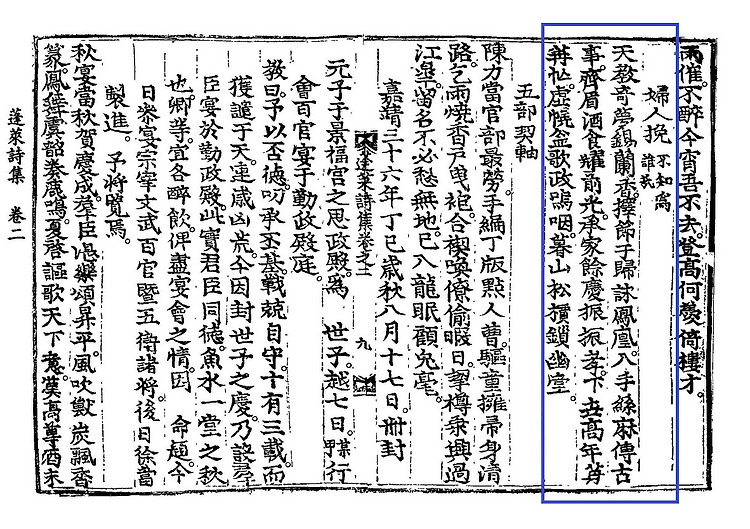 雨催。不醉今宵吾不去。登高何羨倚樓才。
婦人挽 不知爲誰氏
天敎奇夢錫蘭香。擇節于歸詠鳳凰。入手絲麻傳古
事。齊眉酒食耀前光。承家餘慶振振孝。下世高年
虛幌盆歌政嗚咽。暮山松檟鎖幽堂。
五部契軸
陳力當官部最勞。手編丁版點人曹。驅童擁帚身淸
路。乞雨燒香戶曳袍。合禊喚僚偸暇日。挈樽乘興過
江皐。留名不必愁無地。已入龍眠顧兔毫。
嘉靖三十六年丁巳歲秋八月十七日。冊封
蓬萊詩集卷之二 九
元子于景福宮之思政殿。爲 世子。越七日 行
會百官宴于勤政殿庭。
敎曰。予以否德。叨承丕基。戰兢自守。十有三載。而
獲譴于天。連歲凶荒。今因封世子之慶。乃設羣
臣宴於勤政殿。此實君臣同德魚水一堂之秋
也。卿等。宜各醉飮。俾盡宴會之情。因 命題。今
日參宴宗宰文武百官曁五衛諸將。後日徐當
製進。予將覽焉。
秋宴當秋賀慶成。羣臣愷樂頌昇平。風吹獸炭飄香
篆。鳳舞虞韶奏鹿鳴。夏啓謳歌天下意。漢高尊酒未
蓬萊詩集 卷二